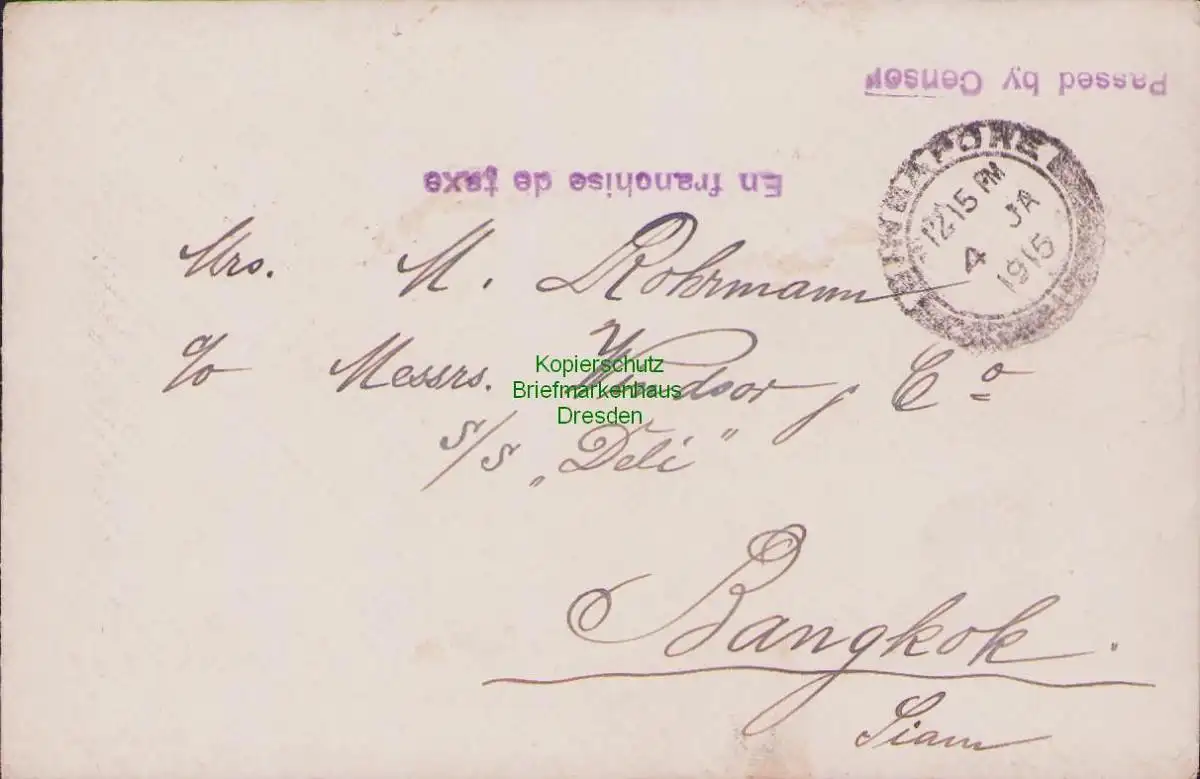 Passed by Censor
En franchise de taxe
SINGAPORE
12.15 PM
4 JA
1915
Mrs. M. Rohrmann
c/o Messrs. Windsor & Co
S/S „Deli"
Bangkok.
Siam
Kopierschutz
Briefmarkenhaus
Dresden